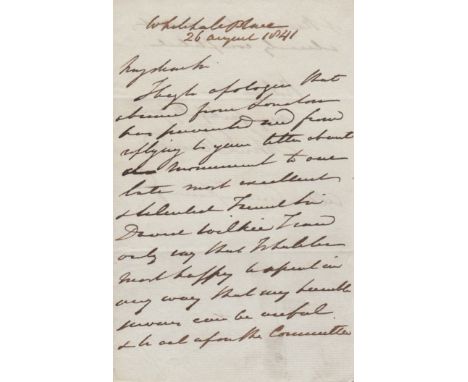 Whitehall Place
26 August 1841
My dear Sir
I beg to apologise that
absence from London
has prevented me from
replying to your letter about
a Monument to our
late most excellent
& talented Friend Sir
David Wilkie I can
only say that I shall be
most happy to assist in
any way that my humble
services can be useful
& to act upon the Committee